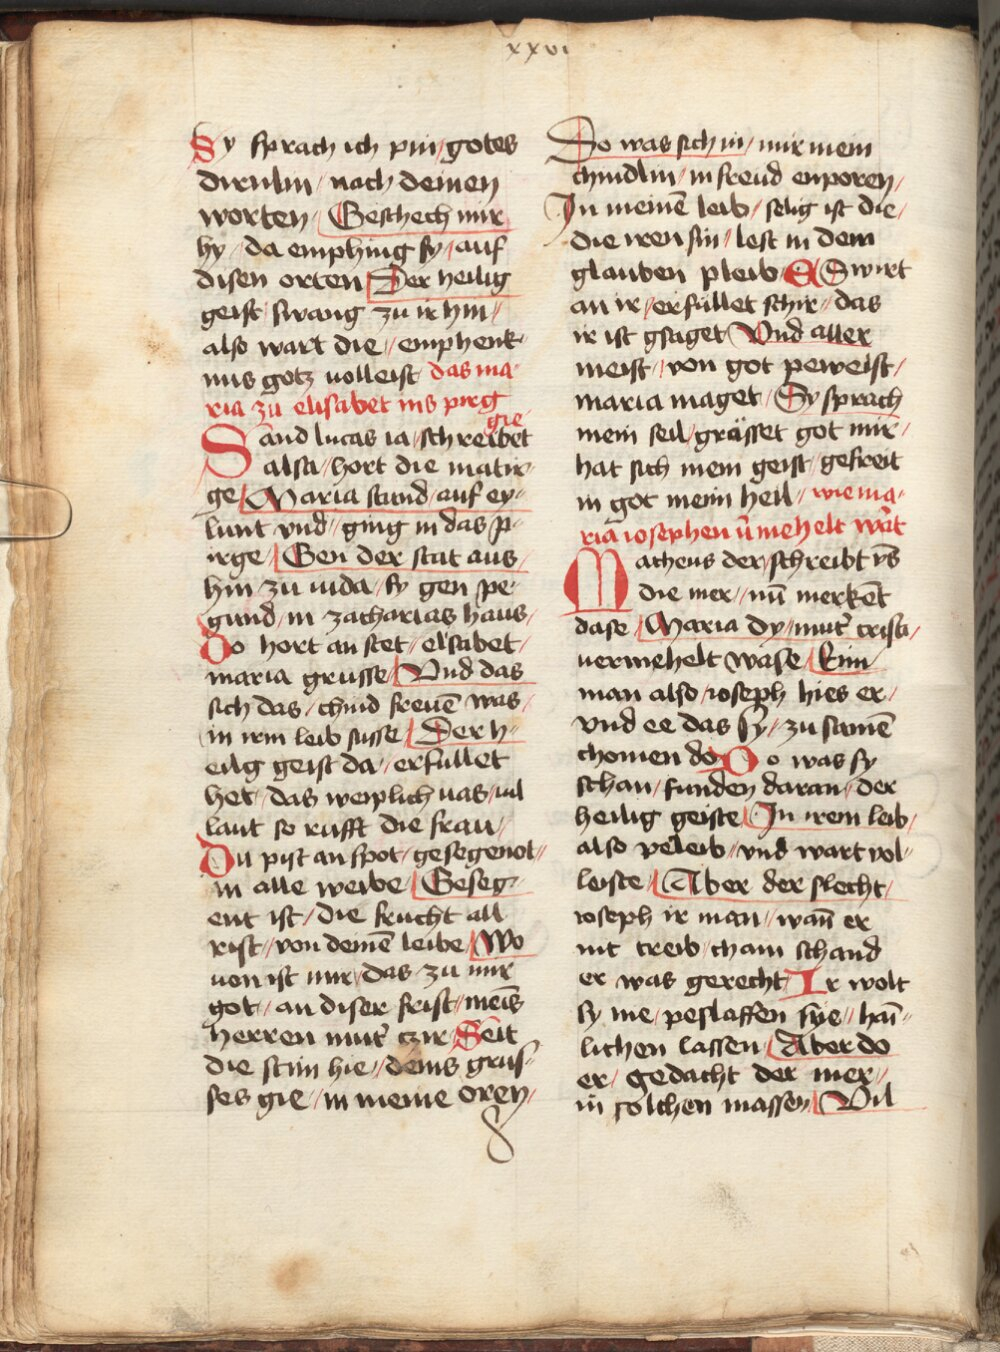 xxvi
Sy sprach ich pin / gotes
dirnlin / nach deinen
worten / Geschech mir
hy / da emphing sy / auf
disen orten Der heilig
geist / swang zu ir hin /
also wart die / emphenk-
nus gotz volleist das ma-
ria zu elisabet ins pirg
gie
Sand lucas ia / schreibet
also / hort die matir-
ge / Maria stund / auf ey-
lunt vnd / ging in das p-
irge / Gen der stat aus /
hin zu iuda / sy gen pe-
gund / in zacharias haus /
Do hort an stet / elsabet /
maria grusse / Vnd das
sich das / chind freuē was /
in irm leib susse / Der h-
eilg geist da / erfullet
het / das weiplich vas / vil
laut so rufft die frau /
Du pist an spot / gesegenot /
in alle weibe / Geseg-
ent ist / die frucht all
rist / von deinē leibe / Wo
uon ist mir / das / zu mir
got / an diser frist / meīs
herren mut' / czir / Seit
die stim hie / deins grus-
ses gie / in meine oren /
Do was sich in / mir mein
chindlin / in freud enporen /
In meinē leib / selig ist die /
die iren sin / lest in dem
glauben pleib / ES wirt
an ir / erfullet schir / das
ir ist gsaget / Vnd aller
meist / von got peweist /
maria maget / Sy sprach
mein sel / grösset got mir /
hat sich mein geist / gefreit
in got meim heil / wie ma-
ria iosephen v̄mehelt wart
Matheus der / schreibt vns
die mer / nū merkēt
dase / Maria dy / mut' cristi /
uermehelt wase / Eim
man also / ioseph hies er /
vnd ee das sy / zu samē
chomen do / Do was sy
schan / funden daran / der
heilig geiste / In irem leib /
also peleib / vnd wart vol-
leiste / Aber der slecht /
ioseph ir man / wan er
nit treib / cham schand
er was gerecht / Er wolt
sy nie / peslaffen hye / haī-
lichen lassen / Aber do
er / gedacht der mer /
in solchen massen / Vil